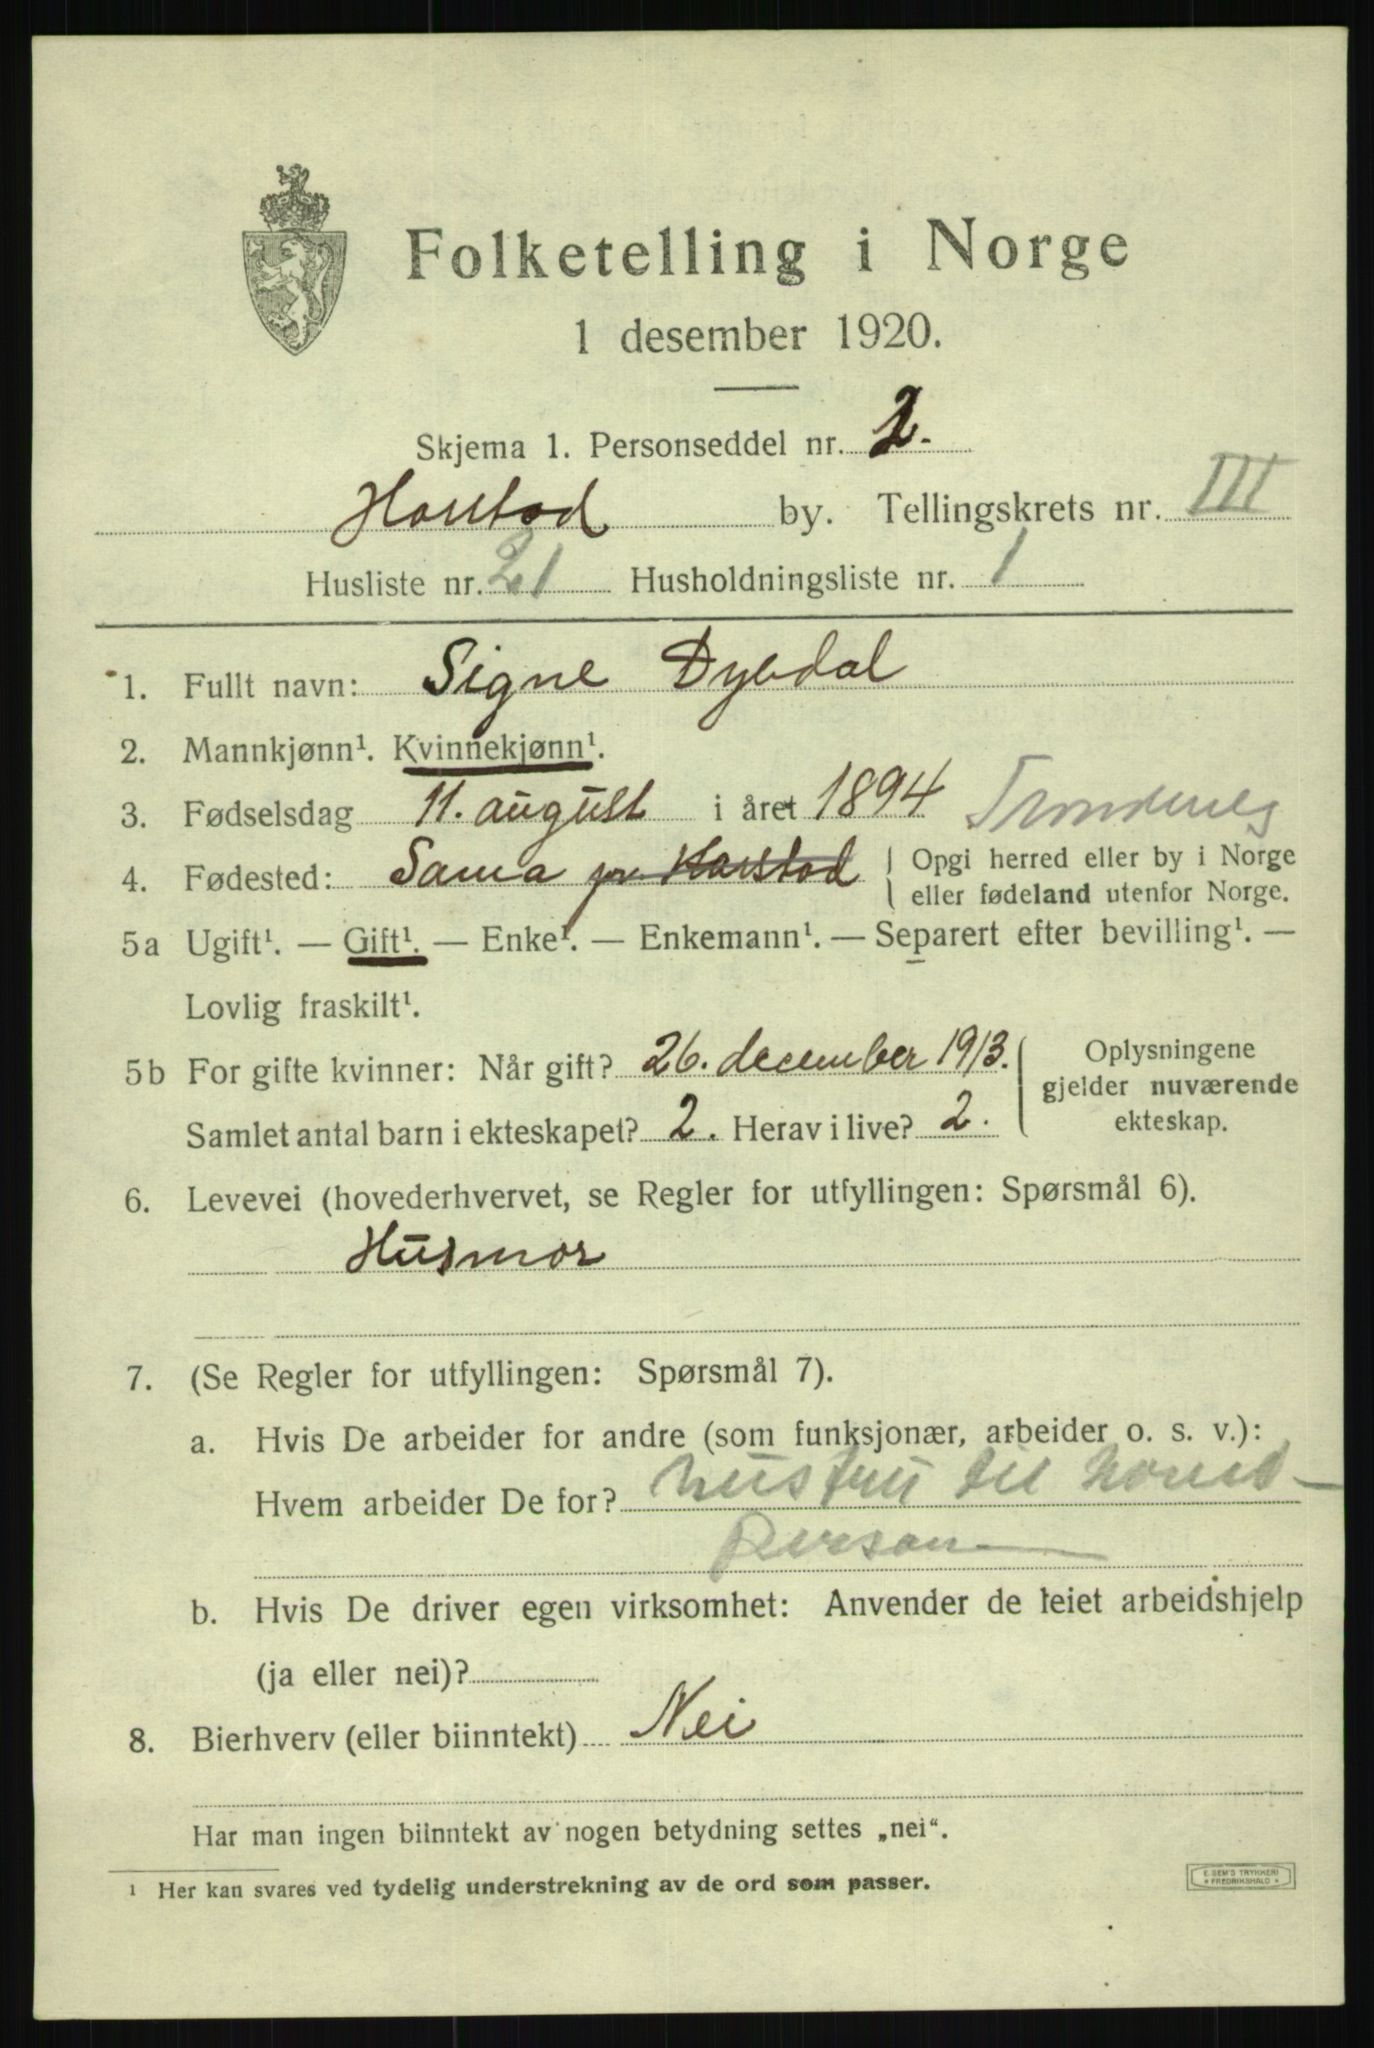 Folketelling i Norge
1 desember 1920.
Skjema 1. Personseddel nr. 2.
Harstad by. Tellingskrets nr. III
Husliste nr. 21 Husholdningsliste nr. 1
1. Fullt navn: Signe Dybdal
2. Mannkjønn¹. Kvinnekjønn¹.
3. Fødselsdag 11. august i året 1894 Trondenes
4. Fødested: Sama pr Harstad Opgi herred eller by i Norge
eller fødeland utenfor Norge.
5a Ugift¹. — Gift¹. — Enke¹. — Enkemann¹. — Separert efter bevilling¹. —
Lovlig fraskilt¹.
5b For gifte kvinner: Når gift? 26. december 1913.
Samlet antal barn i ekteskapet? 2. Herav i live? 2.
Oplysningene
gjelder nuværende
ekteskap.
6. Levevei (hovederhvervet, se Regler for utfyllingen: Spørsmål 6).
Husmor
7. (Se Regler for utfyllingen: Spørsmål 7).
a. Hvis De arbeider for andre (som funksjonær, arbeider o. s. v.):
Hvem arbeider De for? hustru til hoved-
person
b. Hvis De driver egen virksomhet: Anvender de leiet arbeidshjelp
(ja eller nei)?
8. Bierhverv (eller biinntekt) Nei
Har man ingen biinntekt av nogen betydning settes „nei“.
¹ Her kan svares ved tydelig understrekning av de ord som passer.
E. SEM'S TRYKKERI
* FREDRIKSHALD *